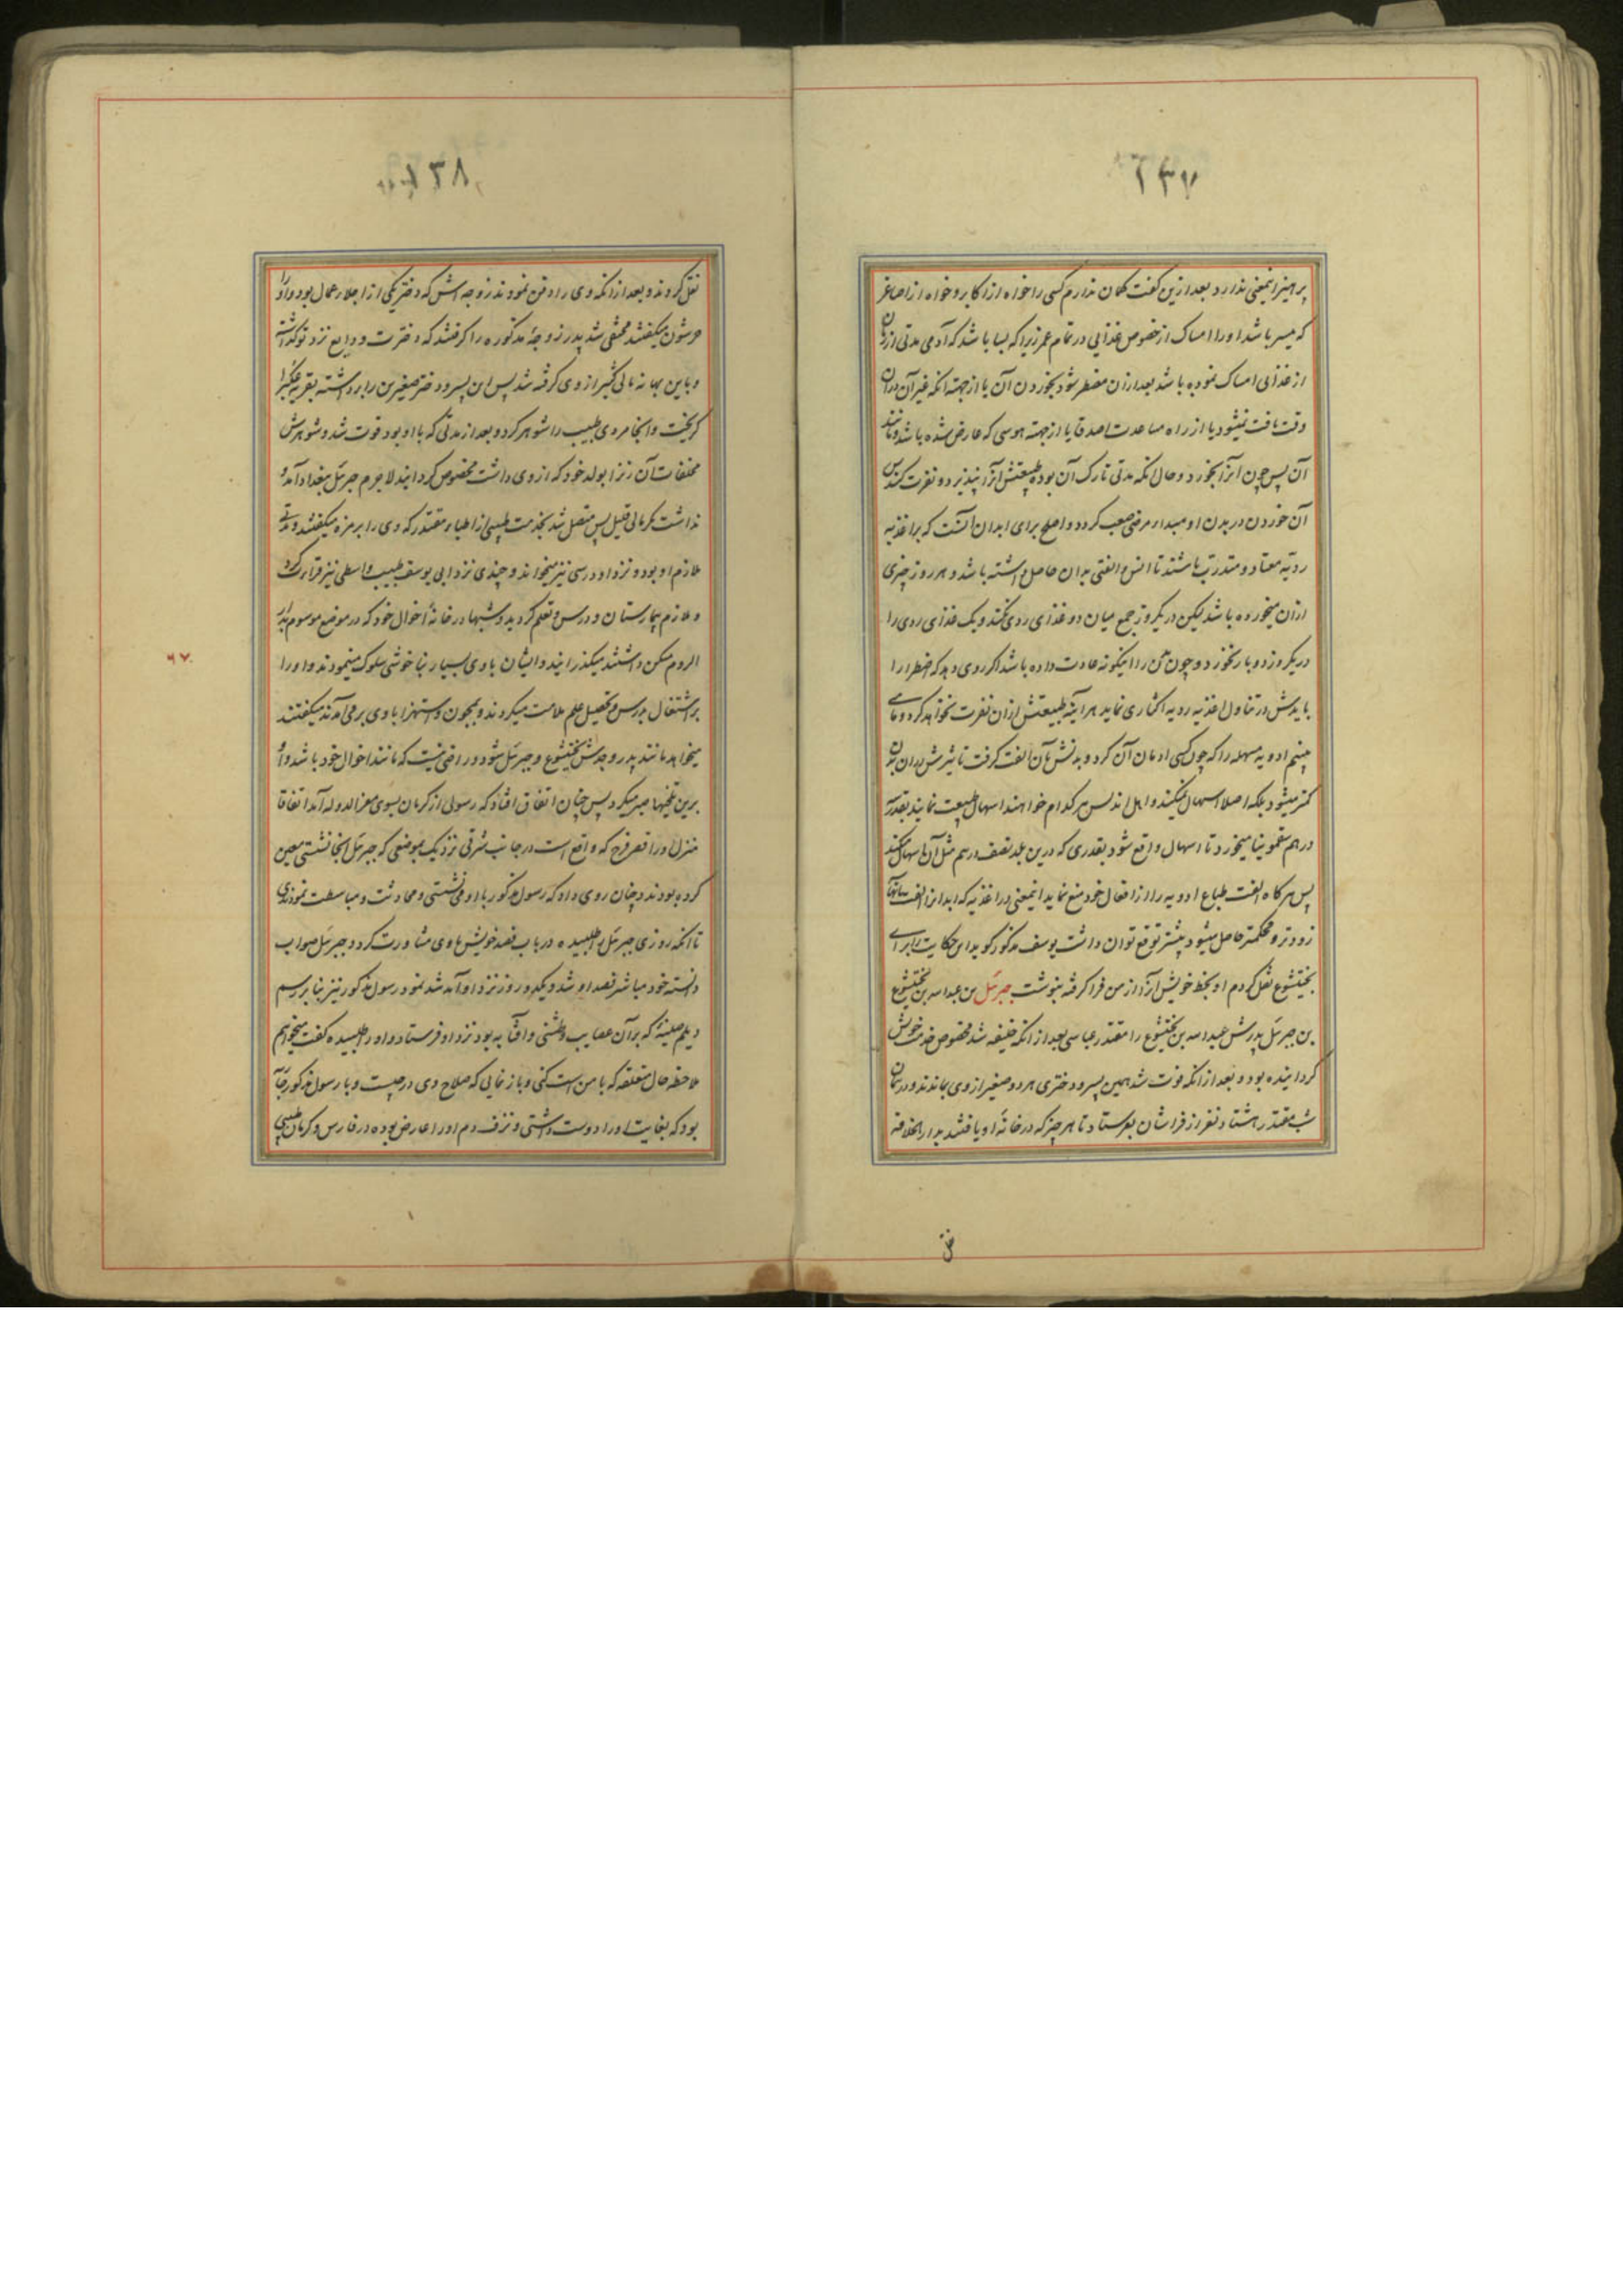 ۱۳۷
پرهیز اینمعنی ندارد بعد ازین گفت گمان ندارم کسی را خواه از اکابر و خواه از اصاغر
که میسر باشد او را امساک از خصوص غذایی در تمام عمر زیرا که بسا باشد که آدمی مدتی از زمان
از غذایی امساک نموده باشد بعد ازان مضطر شود بخوردن آن یا از جهة انکه غیر آن دران
وقت یافت نمیشود یا از راه مساعدت اصدقا یا از جهة هوسی که عارض شده باشد و مانند
آن پس چون انرا بخورد و حال انکه مدتی تارک آن بوده طبیعتش انرا نپذیرد و نفرت کند پس
آن خوردن در بدن او مبداء مرضی صعب گردد و اصلح برای ابدان آنست که بر اغذیه
ردیه معتاد و متدرب باشند تا انس و الفتی بدان حاصل داشته باشد و هر روز چیزی
ازان میخورده باشد لیکن در یکروز جمع میان دو غذای ردی نکند و یک غذای ردی را
در یکروز دو بار نخورد و چون تن را اینگونه عادت داده باشد اگر روی دهد که اضطرارا
بایدش در تناول اغذیه ردیه اکثاری نماید هر آینه طبیعتش ازان نفرت نخواهد کرد و ما می
بینیم ادویه مسهله را که چون کسی ادمان آن کرد و بدنش بآن الفت گرفت تاثیرش دران بدن
کمتر میشود بلکه اصلا اسهال نمیکند و اهل اندلس هر کدام خواهند اسهال طبیعت نمایند بقدر سه
درهم سقمونیا میخورد تا اسهال واقع شود بقدری که درین بلد نصف درهم مثل آن اسهال کند
پس هر گاه الفت طباع ادویه را از افعال خود منع نماید اینمعنی در اغذیه که ابدانرا الفت بآنها
زودتر و محکمتر حاصل میشود بیشتر توقع توان داشت یوسف مذکور گوید این حکایت را برای
بختیشوع نقل کردم او بخط خویش آنرا از من فرا گرفته بنوشت جبرئل بن عبداسه بن بختیشوع
بن جبرئل پدرش عبداسه بن بختیشوع را مقتدر عباسی بعد از انکه خلیفه شد مخصوص خدمت خویش
گردانیده بود و بعد از انکه فوت شد همین پسر و دختری هر دو صغیر از وی بماندند و در همان
شب مقتدر هشتاد نفر از فراشان بفرستاد تا هر چیز که در خانه او یافتند بدار الخلافة
۱۳۸
نقل کردند و بعد از انکه وی را دفن نمودند زوجه اش که دختر یکی از اجلاء عمال بود و او را
حرشون میگفتند مختفی شد پدر زوجهٔ مذکوره را گرفتند که دخترت ودایع نزد تو گذاشته
و باین بهانه مالی کثیر از وی گرفته شد پس این پسر و دختر صغیرین را برداشته بقریه عکبرا
گریخت و آنجا مردی طبیب را شوهر کرد و بعد از مدتی که با او بود فوت شد و شوهرش
مخلفات آن زنرا بولد خود که از وی داشت مخصوص گردانید لاجرم جبرئل ببغداد آمد و
نداشت مگر مالی قلیل پس متصل شد بخدمت طبیبی از اطباء مقتدر که وی را برمزه میگفتند و مدتی
ملازم او بود و نزد او درسی نیز میخواند و چندی نزد ابی یوسف طبیب واسطی نیز قراءت کرد
و ملازم بیمارستان و درس و تعلم گردید و شبها در خانهٔ اخوال خود که در موضع موسوم بدار
الروم مسکن داشتند میگذرانید و ایشان با وی بسیار بناخوشی سلوک مینمودند و او را
بر اشتغال بدرس و تحصیل علم ملامت میکردند و بمجون و استهزا با وی بر می آمدند میگفتند
میخواهد مانند پدر و جدش بختیشوع و جبرئل شود و راضی نیست که مانند اخوال خود باشد و او
برین تلخیها صبر میکرد پس چنان اتفاق افتاد که رسولی از کرمان بسوی معز الدوله آمد اتفاقا
منزل در قصر فرج که واقع است در جانب شرقی نزدیک بموضعی که جبرئل آنجا نشستی معین
کرده بودند و چنان روی داد که رسول مذکور با او می نشستی و محادثت و مباسطت نمودندی
تا انکه روزی جبرئل را طلبیده در باب فصد خویش با وی مشاورت کرد و جبرئل صواب
دانسته خود مباشر فصد او شد و یکدو روز نزد او آمد شد نمود رسول مذکور نیز بنا بر رسم
دیلم صینیهٔ که بر آن عصایب و طشتی و آفتابه بود نزد او فرستاد و او را طلبیده گفت میخواهم
ملاحظه حال متعلقه که با من است کنی و باز نمایی که صلاح وی در چیست و با رسول مذکور جاریهٔ
بود که بغایت او را دوست داشتی و نزف دم او را عارض بوده در فارس و کرمان طبیبی
۶۷